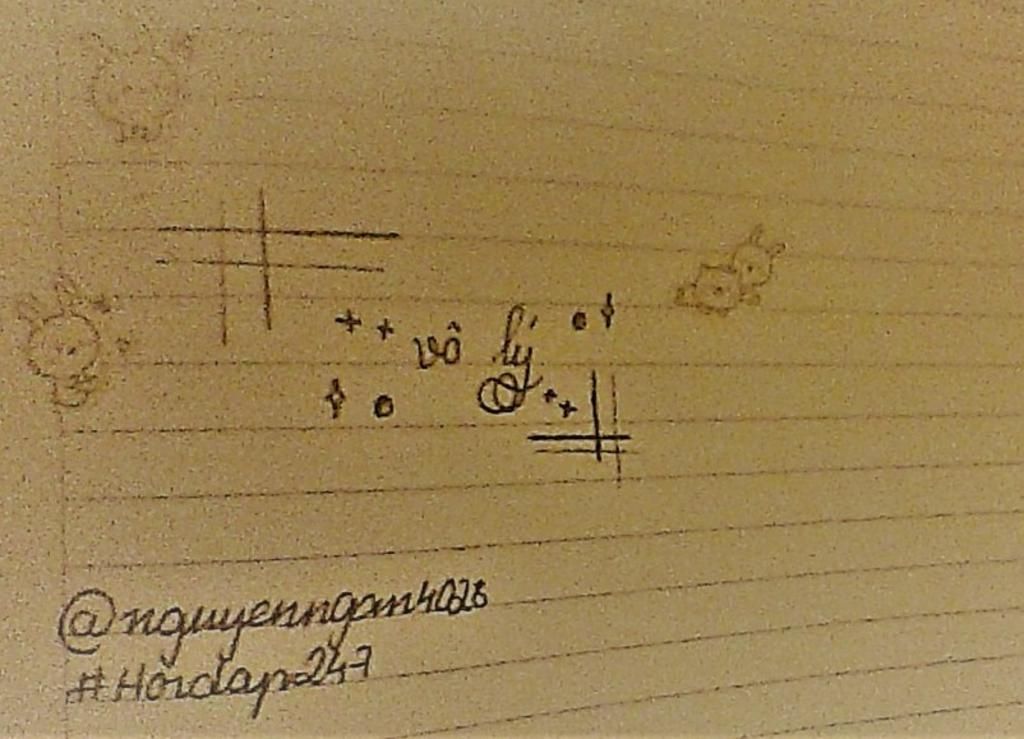 vô lý
@nguyenngan4026
#Hoidap247